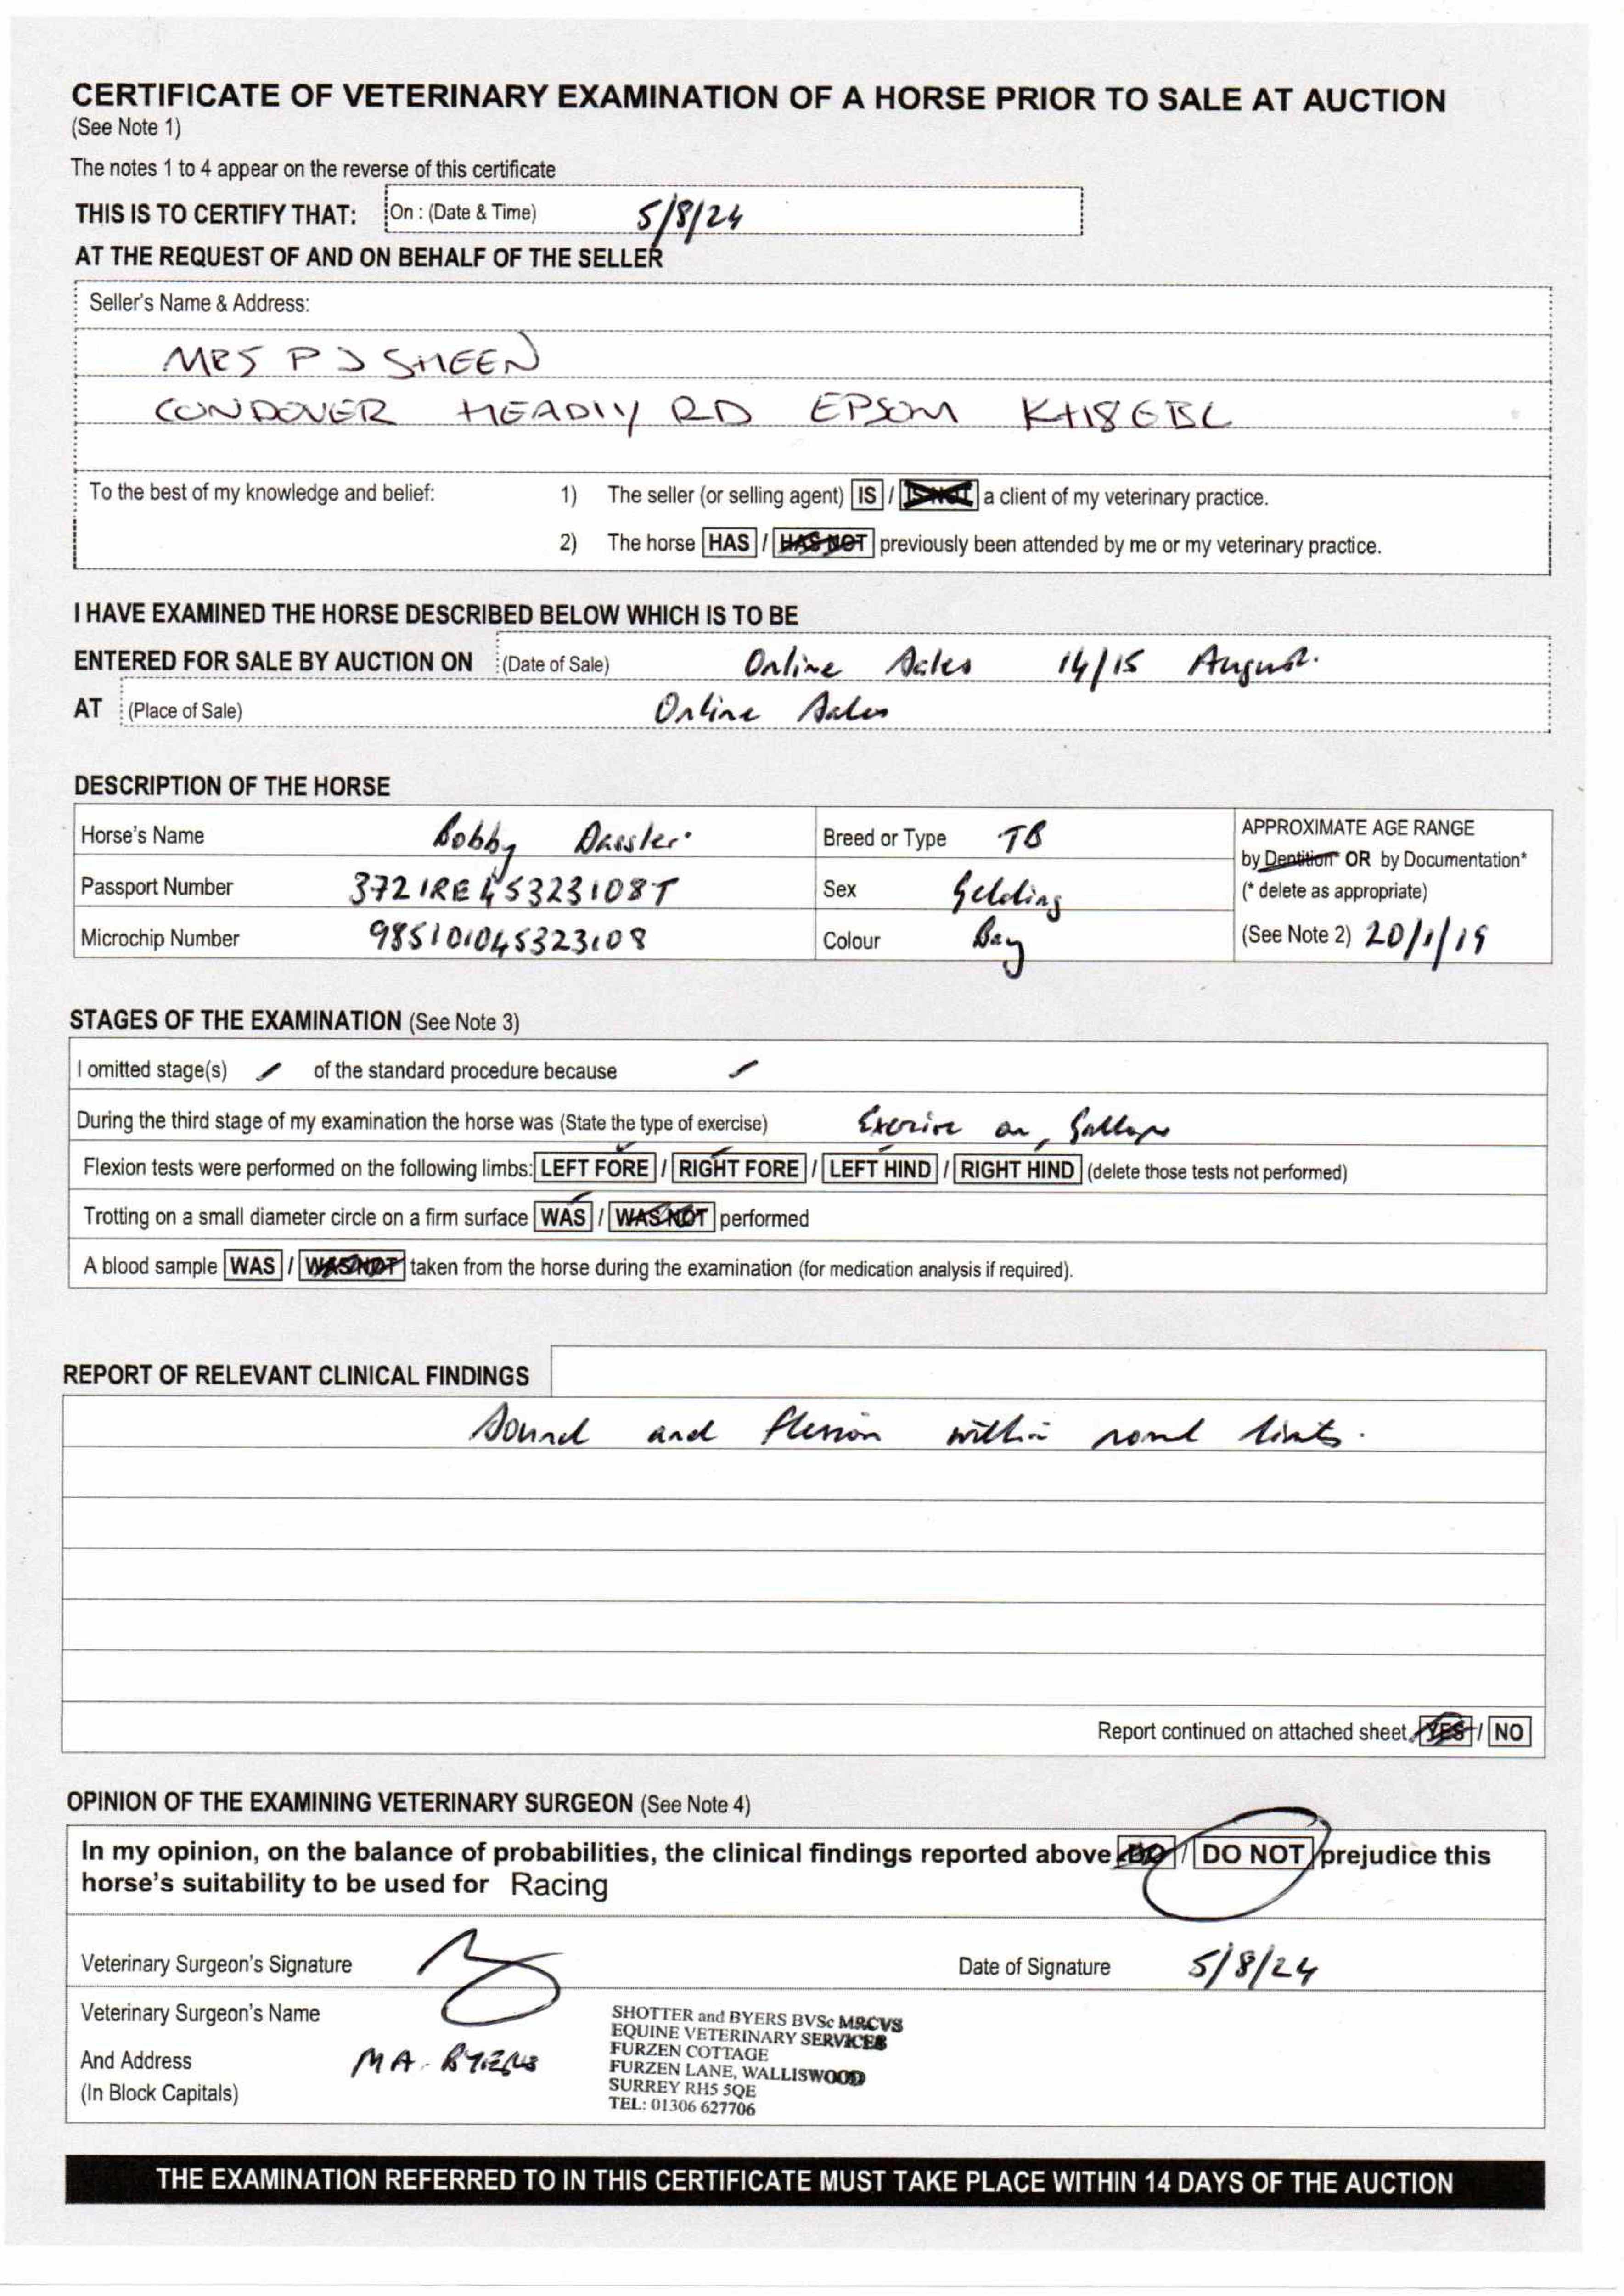 CERTIFICATE OF VETERINARY EXAMINATION OF A HORSE PRIOR TO SALE AT AUCTION
(See Note 1)
The notes 1 to 4 appear on the reverse of this certificate
THIS IS TO CERTIFY THAT: On : (Date & Time) 5/8/24
AT THE REQUEST OF AND ON BEHALF OF THE SELLER
Seller's Name & Address:
MRS P J SHEEN
CONDOVER HEADLY RD EPSOM KT18 6BL
To the best of my knowledge and belief: 1) The seller (or selling agent) IS / IS NOT a client of my veterinary practice.
2) The horse HAS / HAS NOT previously been attended by me or my veterinary practice.
I HAVE EXAMINED THE HORSE DESCRIBED BELOW WHICH IS TO BE
ENTERED FOR SALE BY AUCTION ON (Date of Sale) Online Sales 14/15 August.
AT (Place of Sale) Online Sales
DESCRIPTION OF THE HORSE
Horse's Name Bobby Dassler Breed or Type TB APPROXIMATE AGE RANGE
by Dentition* OR by Documentation*
Passport Number 372IRE45323108T Sex Gelding (* delete as appropriate)
Microchip Number 985101045323108 Colour Bay (See Note 2) 20/1/19
STAGES OF THE EXAMINATION (See Note 3)
I omitted stage(s) / of the standard procedure because /
During the third stage of my examination the horse was (State the type of exercise) Exercise on Gallops
Flexion tests were performed on the following limbs: LEFT FORE / RIGHT FORE / LEFT HIND / RIGHT HIND (delete those tests not performed)
Trotting on a small diameter circle on a firm surface WAS / WAS NOT performed
A blood sample WAS / WAS NOT taken from the horse during the examination (for medication analysis if required).
REPORT OF RELEVANT CLINICAL FINDINGS
Sound and flexion within normal limits.
Report continued on attached sheet. YES / NO
OPINION OF THE EXAMINING VETERINARY SURGEON (See Note 4)
In my opinion, on the balance of probabilities, the clinical findings reported above DO / DO NOT prejudice this
horse's suitability to be used for Racing
Veterinary Surgeon's Signature Date of Signature 5/8/24
Veterinary Surgeon's Name
And Address M A. BYERS
(In Block Capitals)
SHOTTER and BYERS BVSc MRCVS
EQUINE VETERINARY SERVICES
FURZEN COTTAGE
FURZEN LANE, WALLISWOOD
SURREY RH5 5QE
TEL: 01306 627706
THE EXAMINATION REFERRED TO IN THIS CERTIFICATE MUST TAKE PLACE WITHIN 14 DAYS OF THE AUCTION